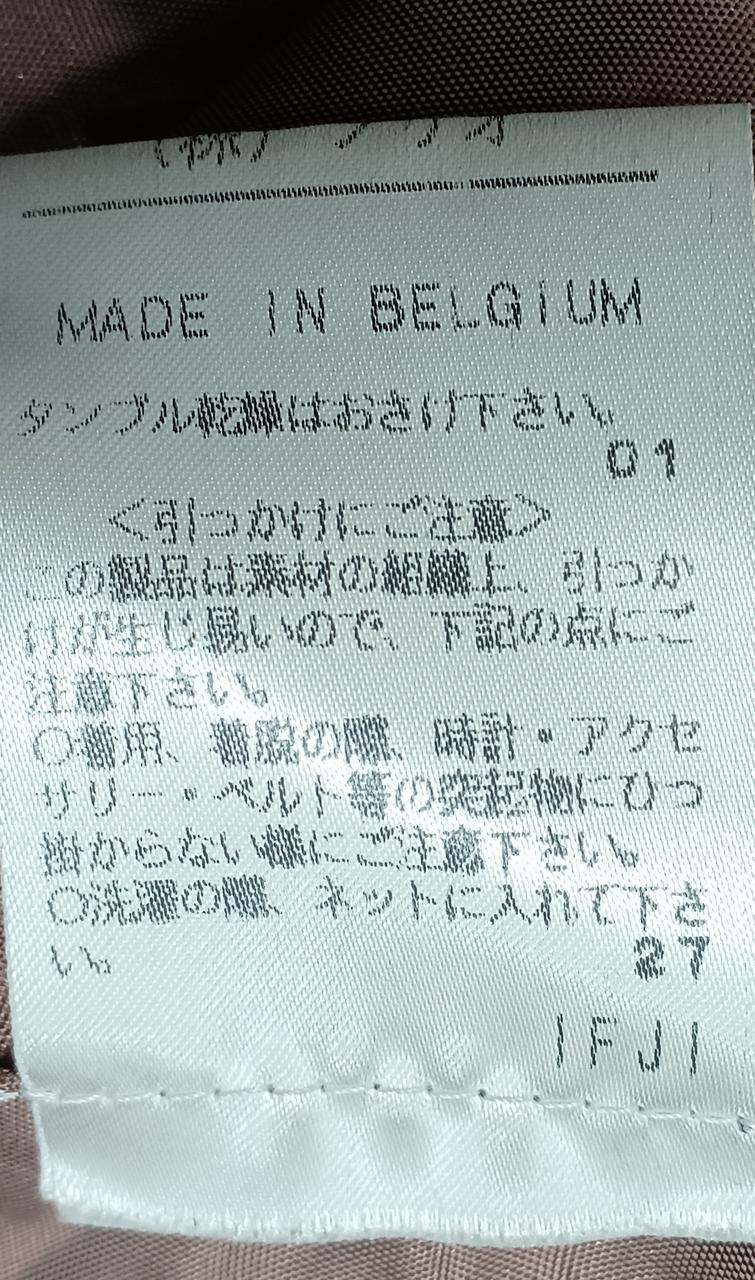 MADE IN BELGIUM
タンブル乾燥はおさけ下さい。
01
＜引っかけにご注意＞
この製品は素材の組織上、引っか
けが生じ易いので、下記の点にご
注意下さい。
○着用、着脱の際、時計・アクセ
サリー・ベルト等の突起物にひっ
掛からない様にご注意下さい。
○洗濯の際、ネットに入れて下さ
い。
27
IFJI